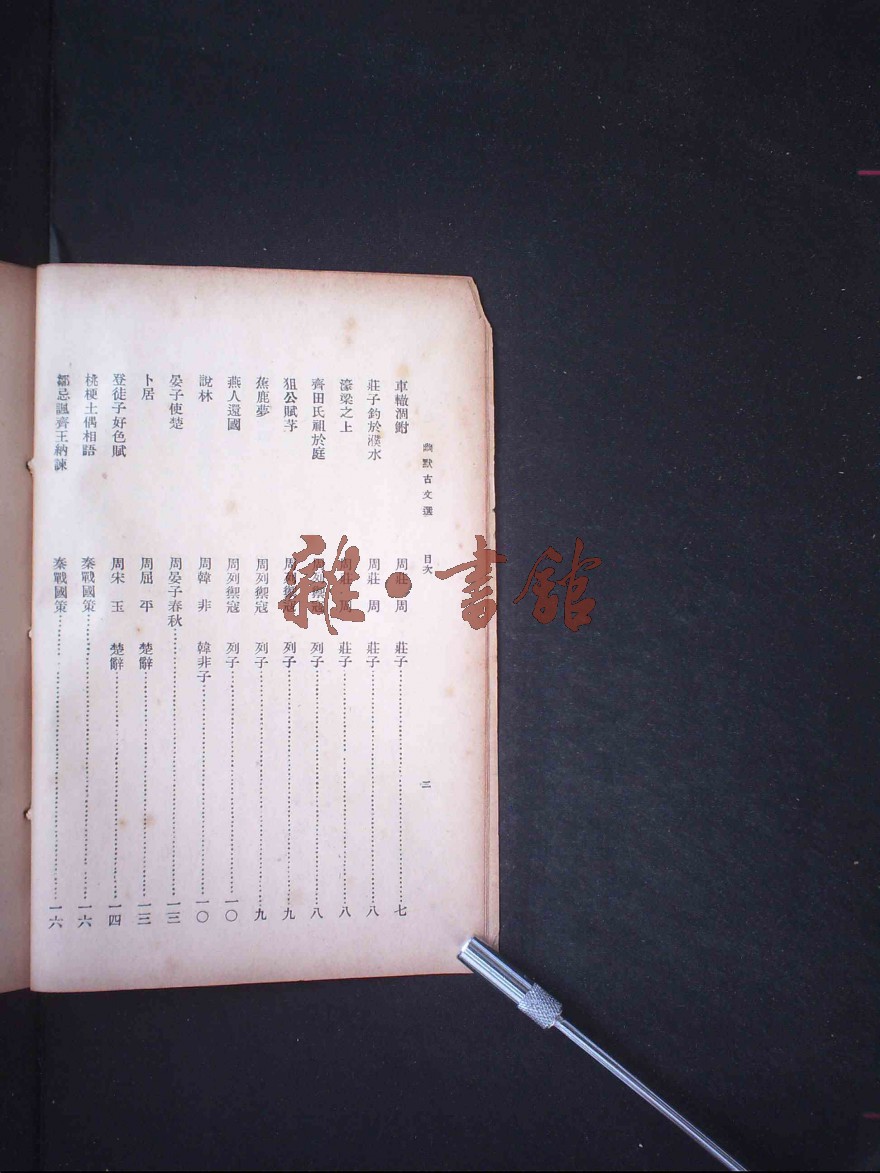 幽默古文選 目次 二
車轍涸鮒 周莊周 莊子……七
莊子釣於濮水 周莊周 莊子……八
濠梁之上 周莊周 莊子……八
齊田氏祖於庭 周列禦寇 列子……八
狙公賦芧 周列禦寇 列子……九
蕉鹿夢 周列禦寇 列子……九
燕人還國 周列禦寇 列子……一〇
說林 周韓非 韓非子……一〇
晏子使楚 周晏子春秋……一三
卜居 周屈平 楚辭……一三
登徒子好色賦 周宋玉 楚辭……一四
桃梗土偶相語 秦戰國策……一六
鄒忌諷齊王納諫 秦戰國策……一六
雜·書館